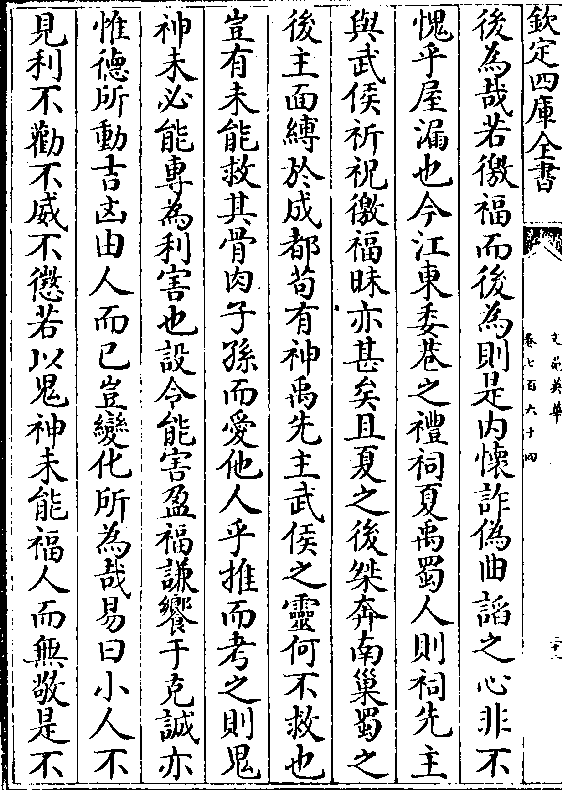 欽定四庫全書
文苑英華
卷七百六十四
後為哉若徼福而後為則是内懷詐偽曲諂之心非不
愧乎屋漏也今江東委巷之禮祠夏禹蜀人則祠先主
與武侯祈祝徼福昧亦甚矣且夏之後桀奔南巢蜀之
後主面縛於成都苟有神禹先主武侯之靈何不救也
豈有未能救其骨肉子孫而愛他人乎推而考之則鬼
神未必能專為利害也設令能害盈福謙饗于克誠亦
惟德所動吉凶由人而已豈變化所為哉易曰小人不
見利不勸不威不懲若以鬼神未能福人而無敬是不